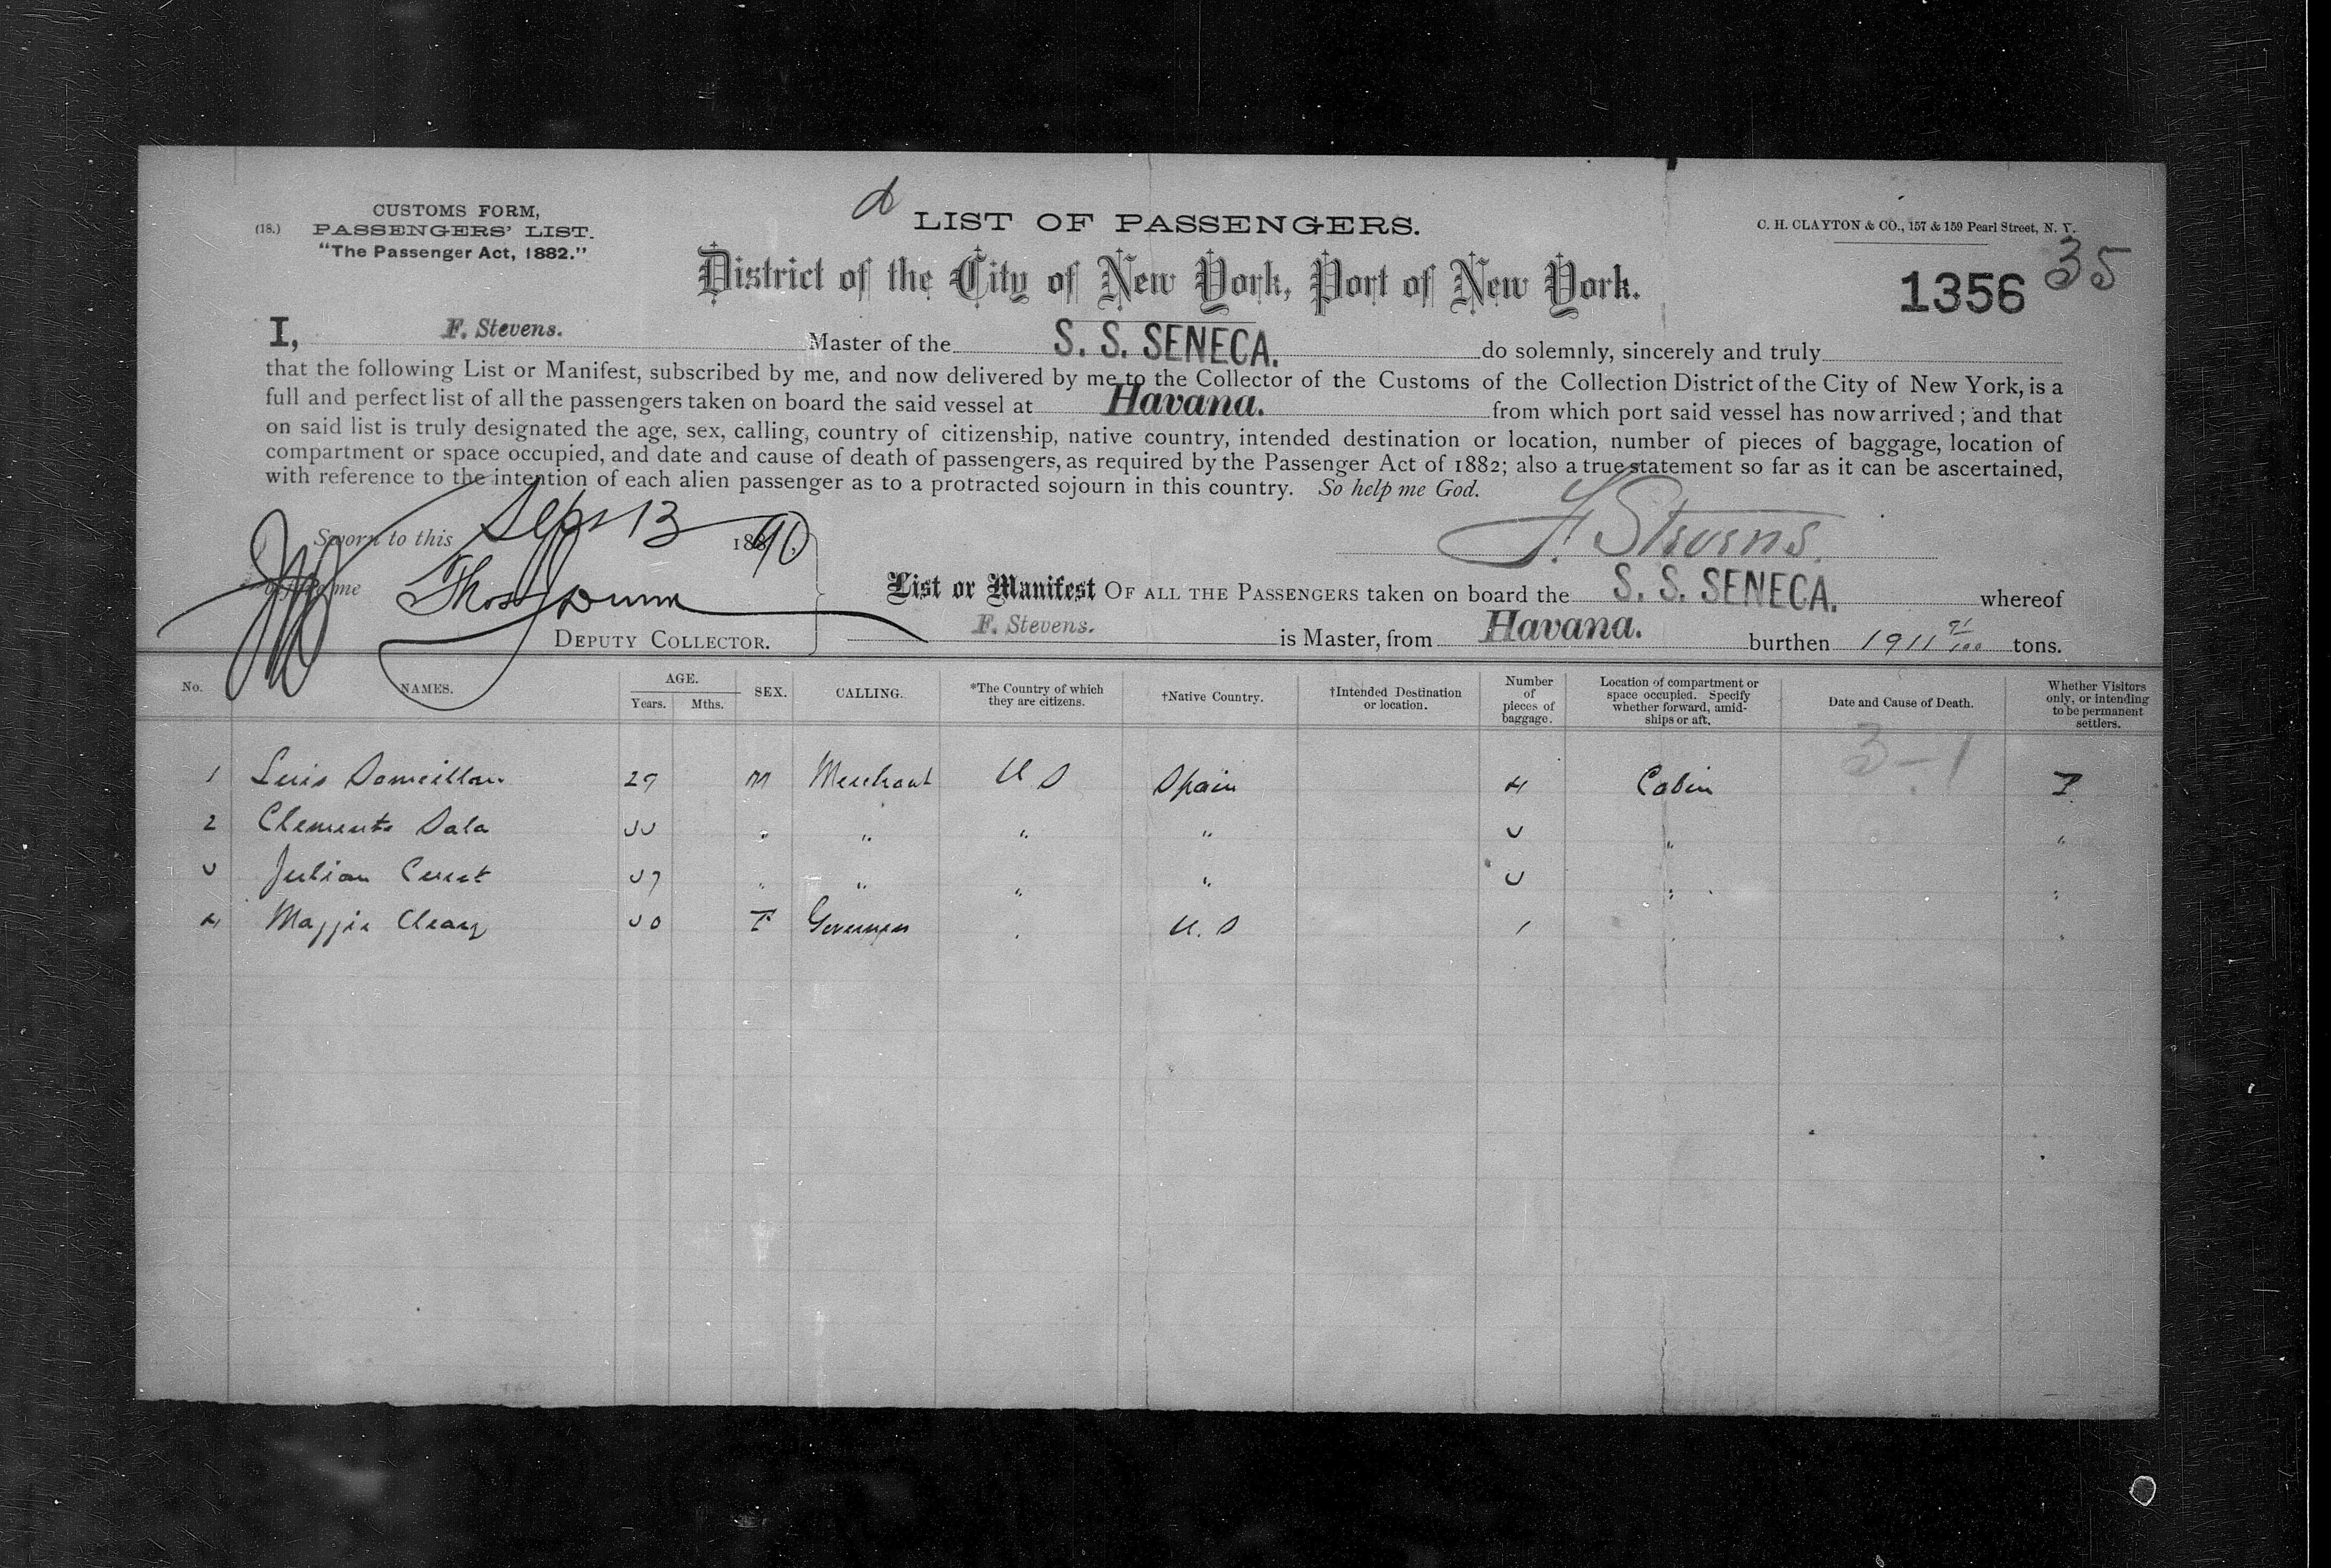 CUSTOMS FORM,
(18.) PASSENGERS' LIST.
"The Passenger Act, 1882."
LIST OF PASSENGERS.
C. H. CLAYTON & CO., 157 & 159 Pearl Street, N. Y.
District of the City of New York, Port of New York.
1356 35
I, F. Stevens. Master of the S. S. SENECA. do solemnly, sincerely and truly
that the following List or Manifest, subscribed by me, and now delivered by me to the Collector of the Customs of the Collection District of the City of New York, is a
full and perfect list of all the passengers taken on board the said vessel at Havana. from which port said vessel has now arrived; and that
on said list is truly designated the age, sex, calling, country of citizenship, native country, intended destination or location, number of pieces of baggage, location of
compartment or space occupied, and date and cause of death of passengers, as required by the Passenger Act of 1882; also a true statement so far as it can be ascertained,
with reference to the intention of each alien passenger as to a protracted sojourn in this country. So help me God.
Sworn to this Sept 13 1890
F. Stevens.
before me Thos Dunn
DEPUTY COLLECTOR.
List or Manifest OF ALL THE PASSENGERS taken on board the S. S. SENECA. whereof
F. Stevens. is Master, from Havana. burthen 1911 91/100 tons.
No. NAMES. AGE. Years. Mths. SEX. CALLING. *The Country of which they are citizens. †Native Country. †Intended Destination or location. Number of pieces of baggage. Location of compartment or space occupied. Specify whether forward, amidships or aft. Date and Cause of Death. Whether Visitors only, or intending to be permanent settlers.
3-1
1 Luis 29 M Merchant U S Spain 4 Cabin
2 Clemente Sala 33 " " " " 3 " "
3 Julian 37 " " " " 3 " "
4 Maggie Cleary 30 F Governess " U. S 1 " "